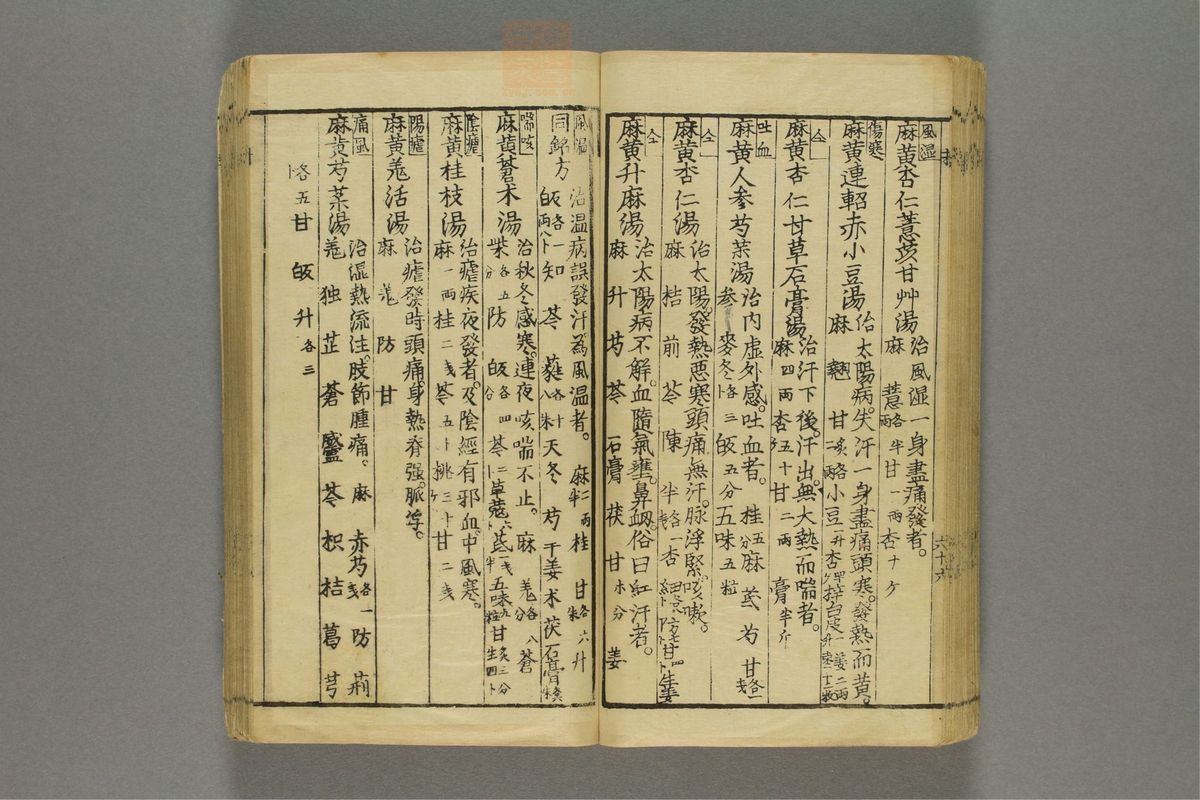 風湿
麻黄杏仁薏苡甘艸湯
治風湿一身盡痛發者。
麻 薏各半両 甘一両 杏十ケ
傷寒
麻黄連軺赤小豆湯
治太陽病。失汗一身盡痛頭寒。發熱而黄。
麻 翹 甘炙二両 小豆一升 杏 梓白皮一升 姜二両
仝
麻黄杏仁甘草石膏湯
治汗下後。汗出。無大熱而喘者。
麻四両 杏五十 甘二両 膏半斤
吐血
麻黄人参芍薬湯
治内虚外感。吐血者。 桂五分 麻 芪 芍 甘各一戋
参 麥冬各三卜 皈五分 五味五粒
仝
麻黄杏仁湯
治太陽。發熱悪寒頭痛。無汗。脉浮緊。咳嗽。
麻 桔 前 芩 陳 半各一戋 杏 細 防 甘 生姜
仝
麻黄升麻湯
治太陽病不解。血隨氣壅。鼻衂。俗曰紅汗者。
麻 升 芍 芩 石膏 茯 甘 姜
六十六
風温
同錦方
治温病誤發汗。為風温者。 麻二両半 桂 甘各六朱 升
皈各一両 知 芩 蕤各十八朱 天冬 芍 干姜 朮 茯 石膏
喘咳
麻黄蒼朮湯
治秋冬感寒。連夜咳喘不止。 麻 羗各八分 蒼
柴各五分 防 皈各四分 芩 草蔻六 芪 五味九粒 甘炙三分 生四卜
陰瘧
麻黄桂枝湯
治瘧疾夜發者。及陰經有邪血。中風寒。
麻一両 桂二戋 芩五卜 桃三十 甘二戋
陽瘧
麻黄羗活湯
治瘧發時頭痛。身熱脊强。脈浮。
麻 羗 防 甘
痛風
麻黄芍薬湯
治湿熱流注。肢節腫痛。 麻 赤芍各一戋 防 荊
羗 独 芷 蒼 威灵 芩 枳 桔 葛 芎
各五卜 甘 皈 升各三